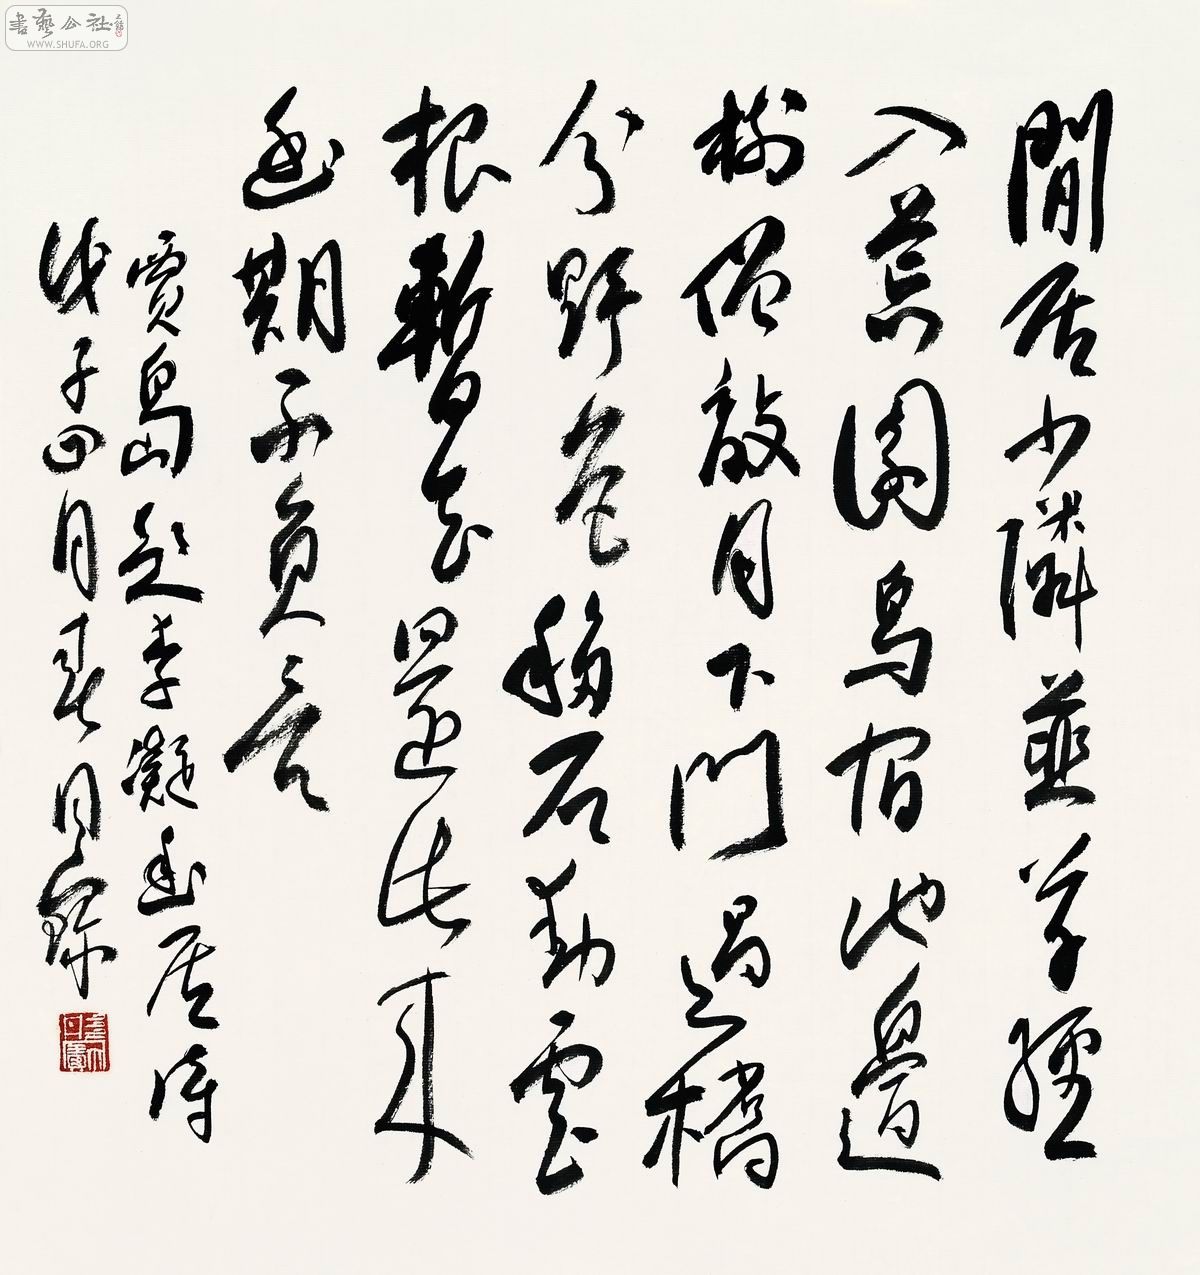 書藝公社
WWW.SHUFA.ORG
閒居少隣並草徑
入荒園鳥宿池邊
樹僧敲月下門過橋
分野色移石動雲
根暫去還此來
幽期不負言
賈島題李凝幽居詩
戊子四月